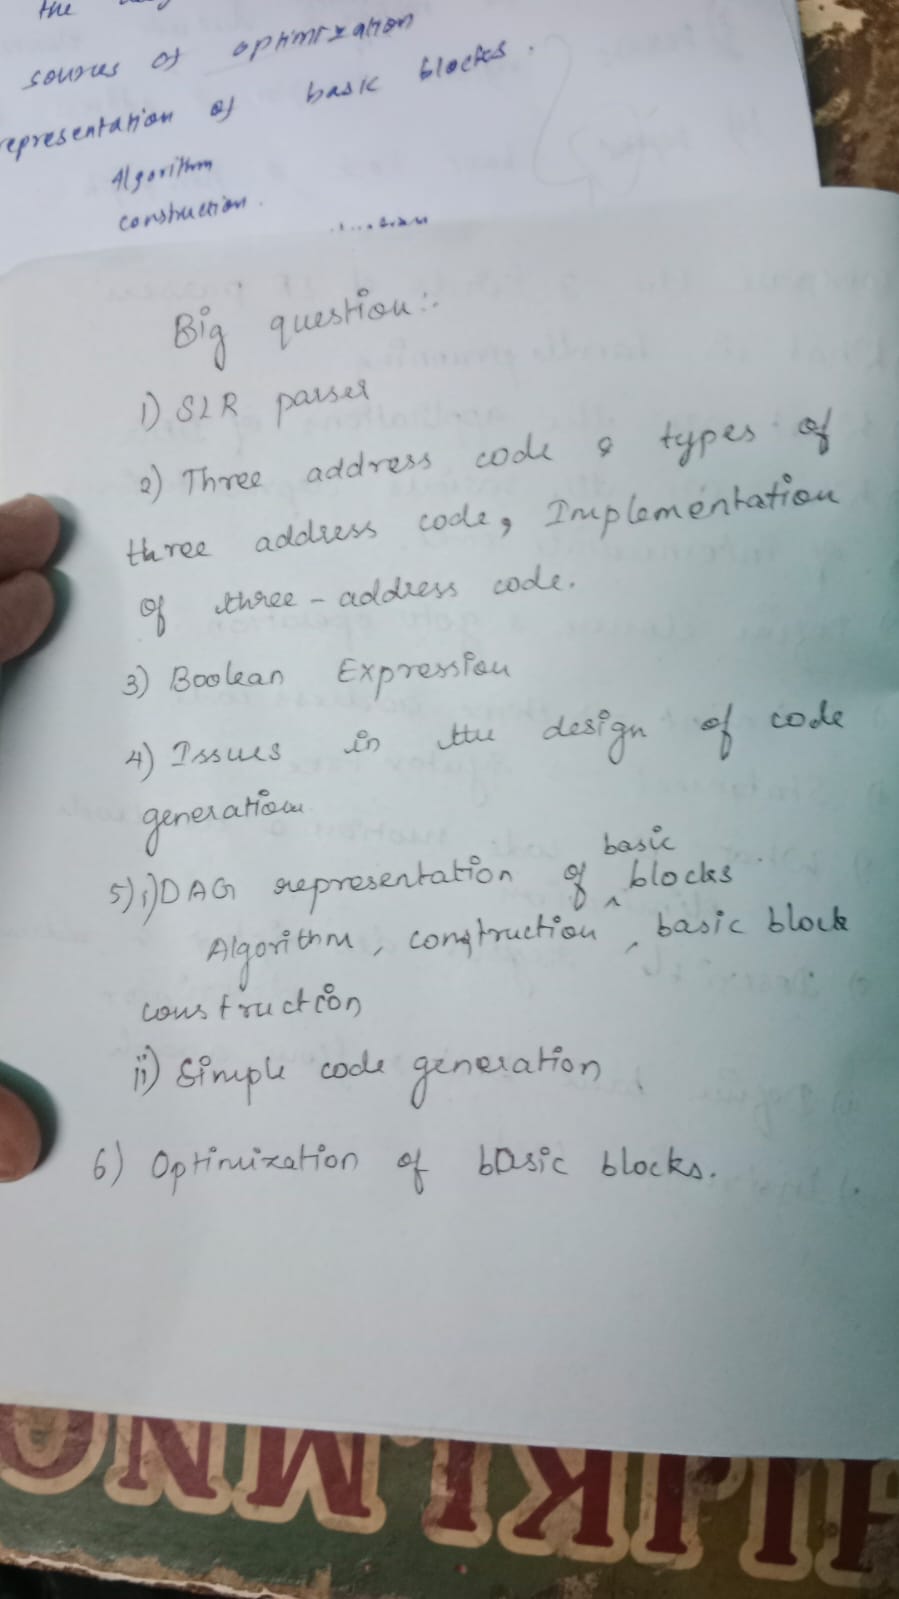 the
sources of optimization
representation of basic blocks.
Algorithm
construction.
Big question:-
1) SLR parser
2) Three address code & types of
three address code, Implementation
of three-address code.
3) Boolean Expression
4) Issues in the design of code
generation
5) i) DAG representation of basic blocks
Algorithm, construction, basic block
construction
ii) Simple code generation
6) Optimization of basic blocks.